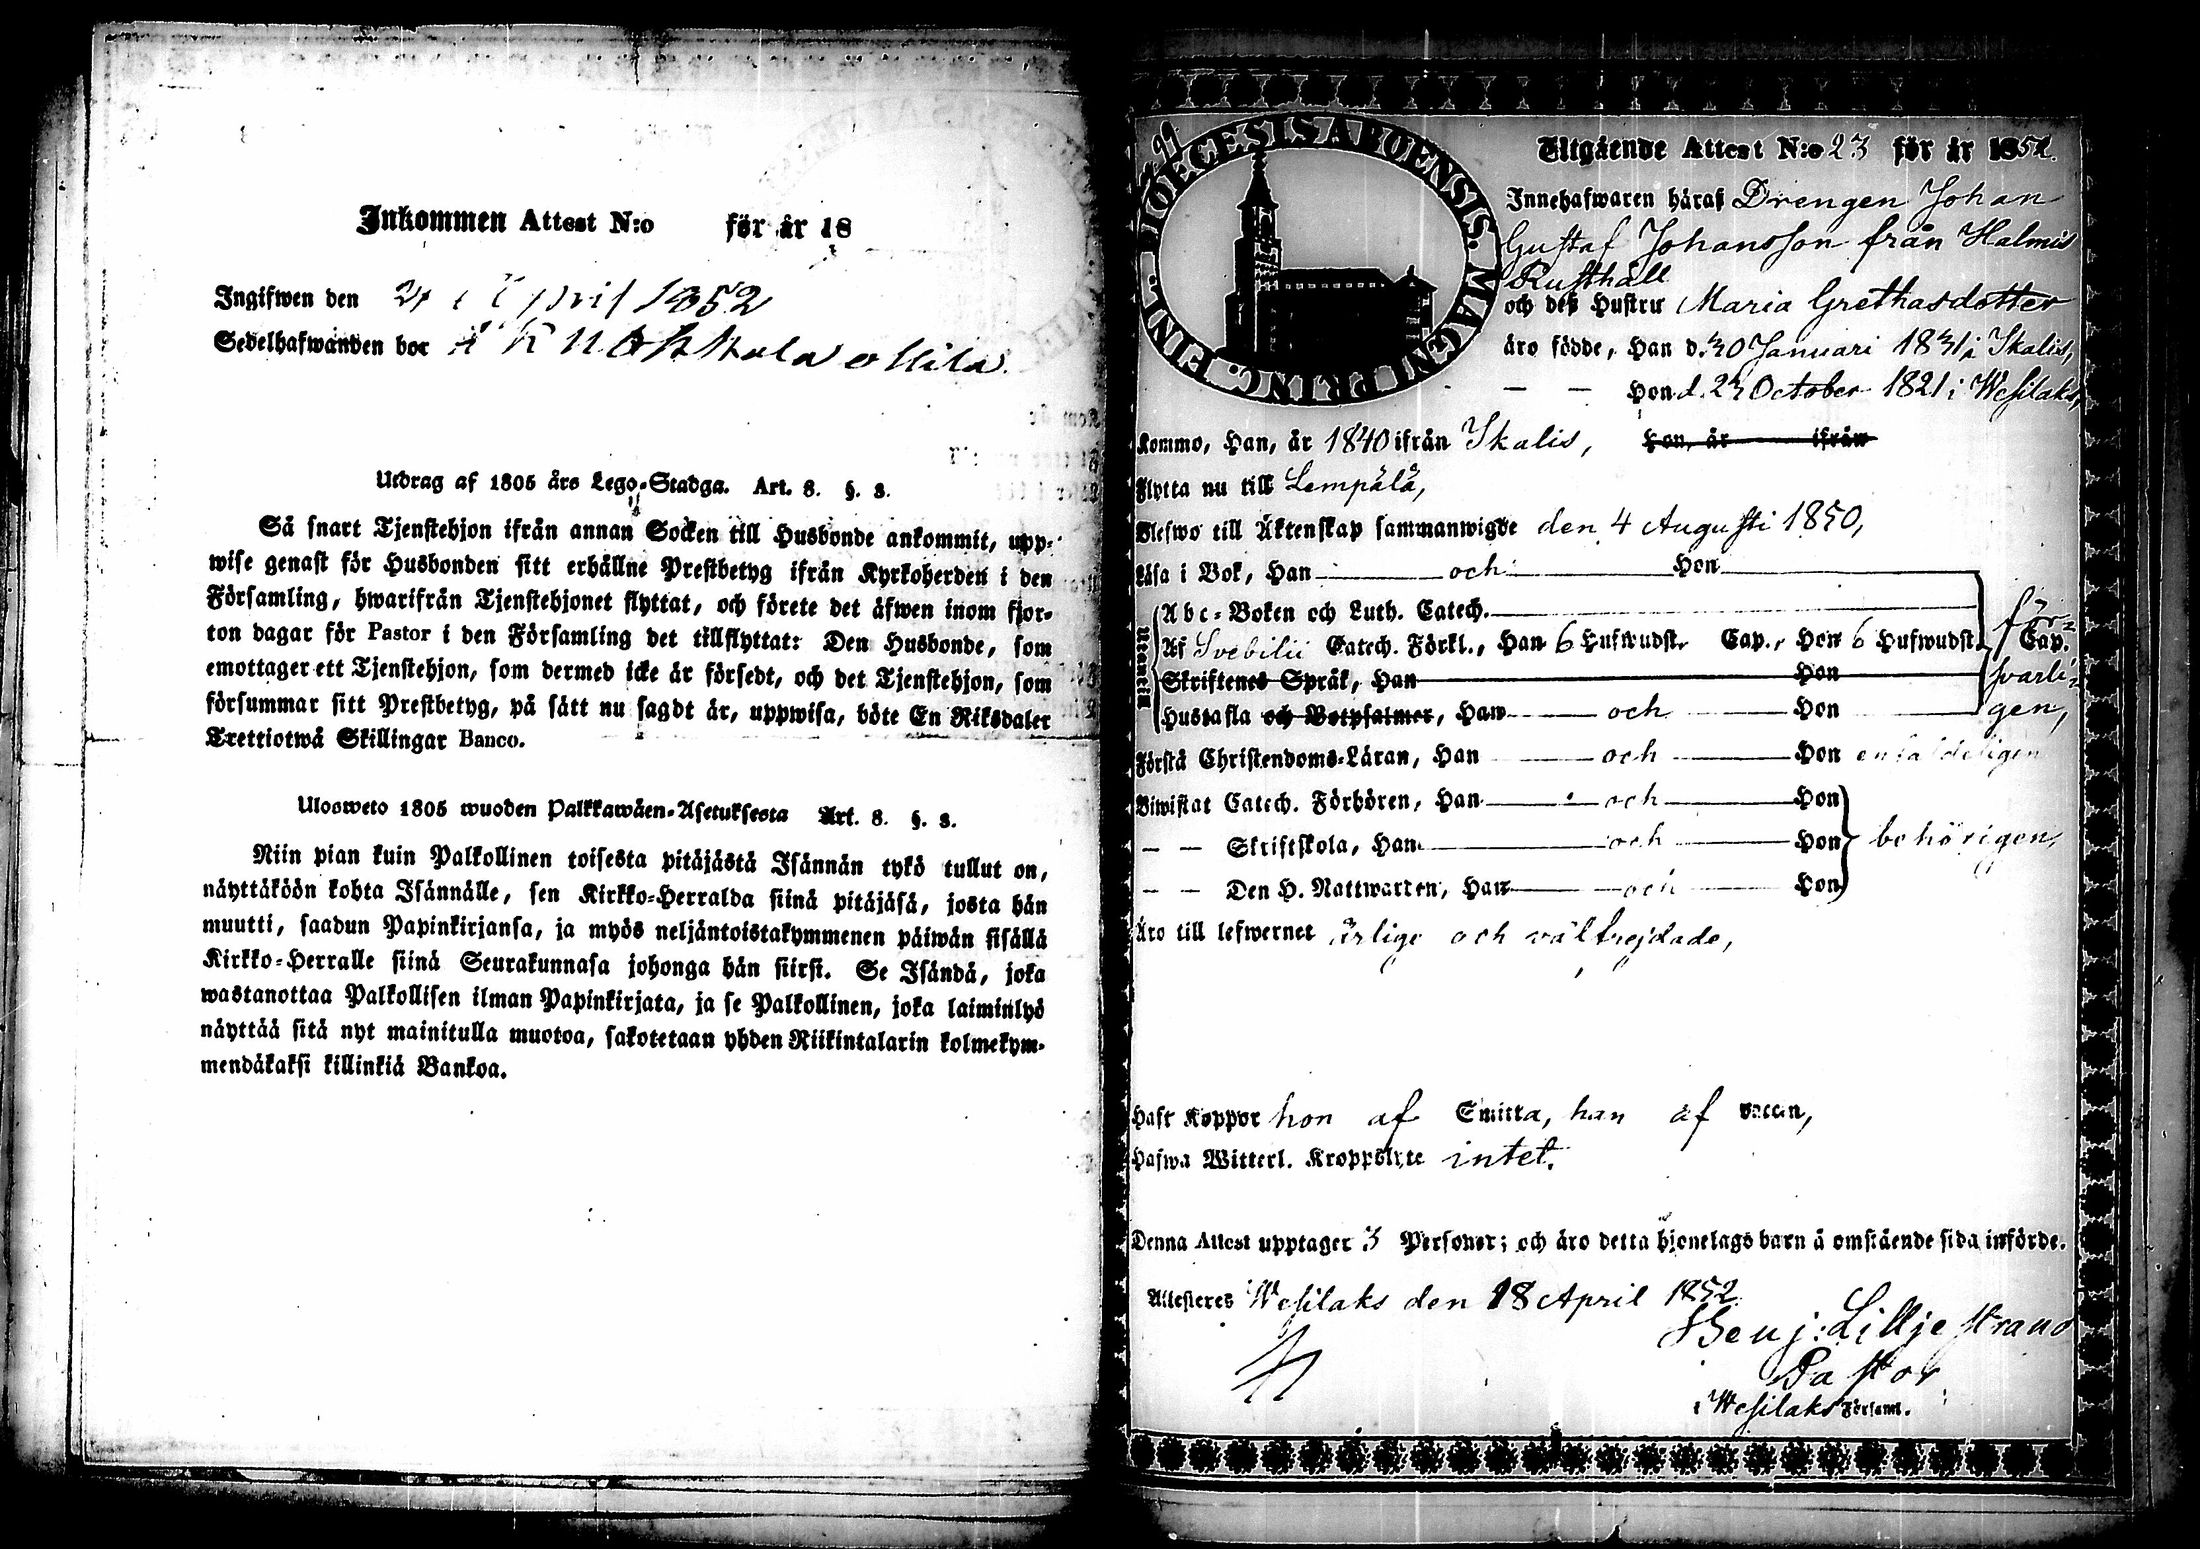 Inkommen Attest N:o för år 18
Ingifwen den 24 April 1852
Sedelhafwanden bor
Utdrag af 1805 års Lego-Stadga. Art. 8. §. 3.
Så snart Tjenstehjon ifrån annan Socken till Husbonde ankommit, upp-
wise genast för Husbonden sitt erhållne Prestbetyg ifrån Kyrkoherden i den
Församling, hwarifrån Tjenstehjonet flyttat, och förete det äfwen inom fjor-
ton dagar för Pastor i den Församling det tillflyttat: Den Husbonde, som
emottager ett Tjenstehjon, som dermed icke är försedt, och det Tjenstehjon, som
försummar sitt Prestbetyg, på sätt nu sagdt är, uppwisa, böte En Riksdaler
Trettiotwå Skillingar Banco.
Ulosweto 1805 wuoden Palkkawäen-Asetuksesta Art. 8. §. 3.
Niin pian kuin Palkollinen toisesta pitäjästä Isännän tykö tullut on,
näyttäköön kohta Isännälle, sen Kirkko-Herralda siinä pitäjäsä, josta hän
muutti, saadun Papinkirjansa, ja myös neljäntoistakymmenen päiwän sisällä
Kirkko-Herralle siinä Seurakunnasa johonga hän siirsi. Se Isändä, joka
wastanottaa Palkollisen ilman Papinkirjata, ja se Palkollinen, joka laiminlyö
näyttää sitä nyt mainitulla muotoa, sakotetaan yhden Riikintalarin kolmekym-
mendäkaksi killinkiä Bankoa.
DIOECESIS ABOENSIS. MAGNI PRINC. FINL.
Utgående Attest N:o 23 för år 1852.
Innehafwaren häraf Drengen Johan
Gustaf Johansson från Halmis
Rusthåll
och deß Hustru Maria Grethasdotter
äro födde, Han d. 30 Januari 1831 i Ikalis,
— — Hon d. 23 October 1821 i Wesilaks,
Komme, Han, år 1840 ifrån Ikalis, Hon, år ifrån
Flytta nu till Lempälä,
Blefwo till Äktenskap sammanwigde den 4 Augusti 1850,
Läsa i Bok, Han och Hon
Utantill
Abc-Boken och Luth. Catech.
Af Svebilii Catech. Förkl., Han 6 Hufwudst. Cap., Hon 6 Hufwudst. Cap.
Skriftenes Språk, Han Hon
Hustafla och Botpsalmer, Han och Hon
för-
svarli-
gen,
Förstå Christendoms-Läran, Han och Hon enfaldeligen
Biwistat Catech. Förhören, Han och Hon
— — Skriftskola, Han och Hon behörigen,
— — Den H. Nattwarden, Han och Hon
Äro till lefwernet ärlige och välfrejdade,
Haft Koppor hon af Smitta, han af vaccin,
Hafwa Witterl. Kroppslyte intet.
Denna Attest upptager 3 Personer; och äro detta hjonelags barn å omstående sida införde.
Attesteras Wesilaks den 18 April 1852.
Benj: Lilljestrand
Pastor
i Wesilaks Församl.